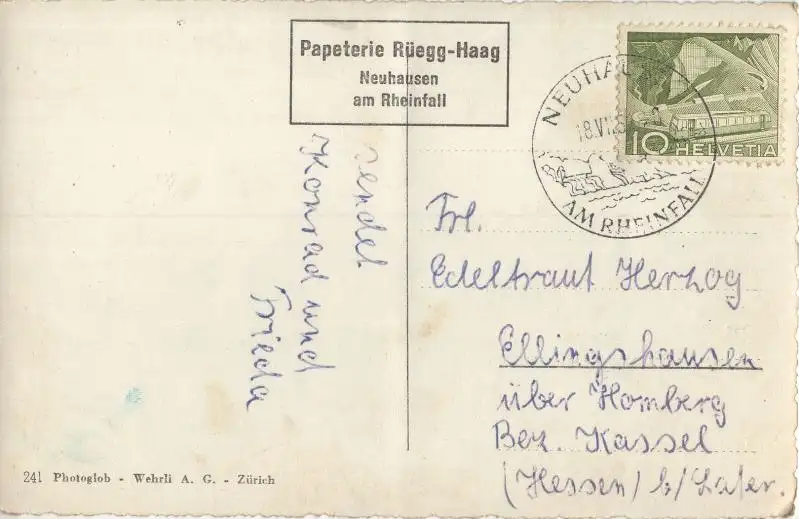 Papeterie Rüegg-Haag
Neuhausen
am Rheinfall
NEUHAUSEN
AM RHEINFALL
10 HELVETIA
sendet
Konrad und
Frieda
Frl.
Edeltraut Herzog
Ellingshausen
über Homberg
Bez. Kassel
(Hessen) b/
241 Photoglob - Wehrli A. G. - Zürich